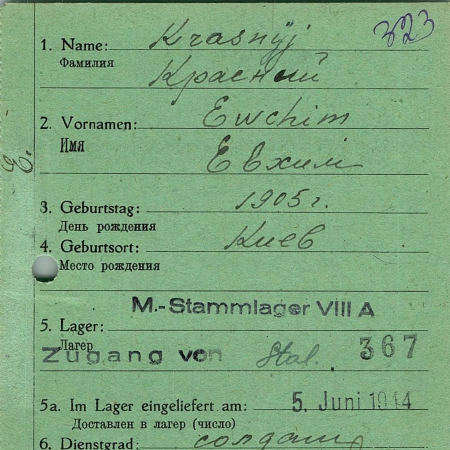 323
1. Name: Krasnyj
Фамилия Красный
2. Vornamen: Ewchim
Имя Евхим
E.
3. Geburtstag: 1905 г.
День рождения
4. Geburtsort: Киев
Место рождения
M.-Stammlager VIII A
5. Lager:
Лагер
Zugang von Stal. 367
5a. Im Lager eingeliefert am: 5. Juni 1944
Доставлен в лагер (число)
6. Dienstgrad: солдат